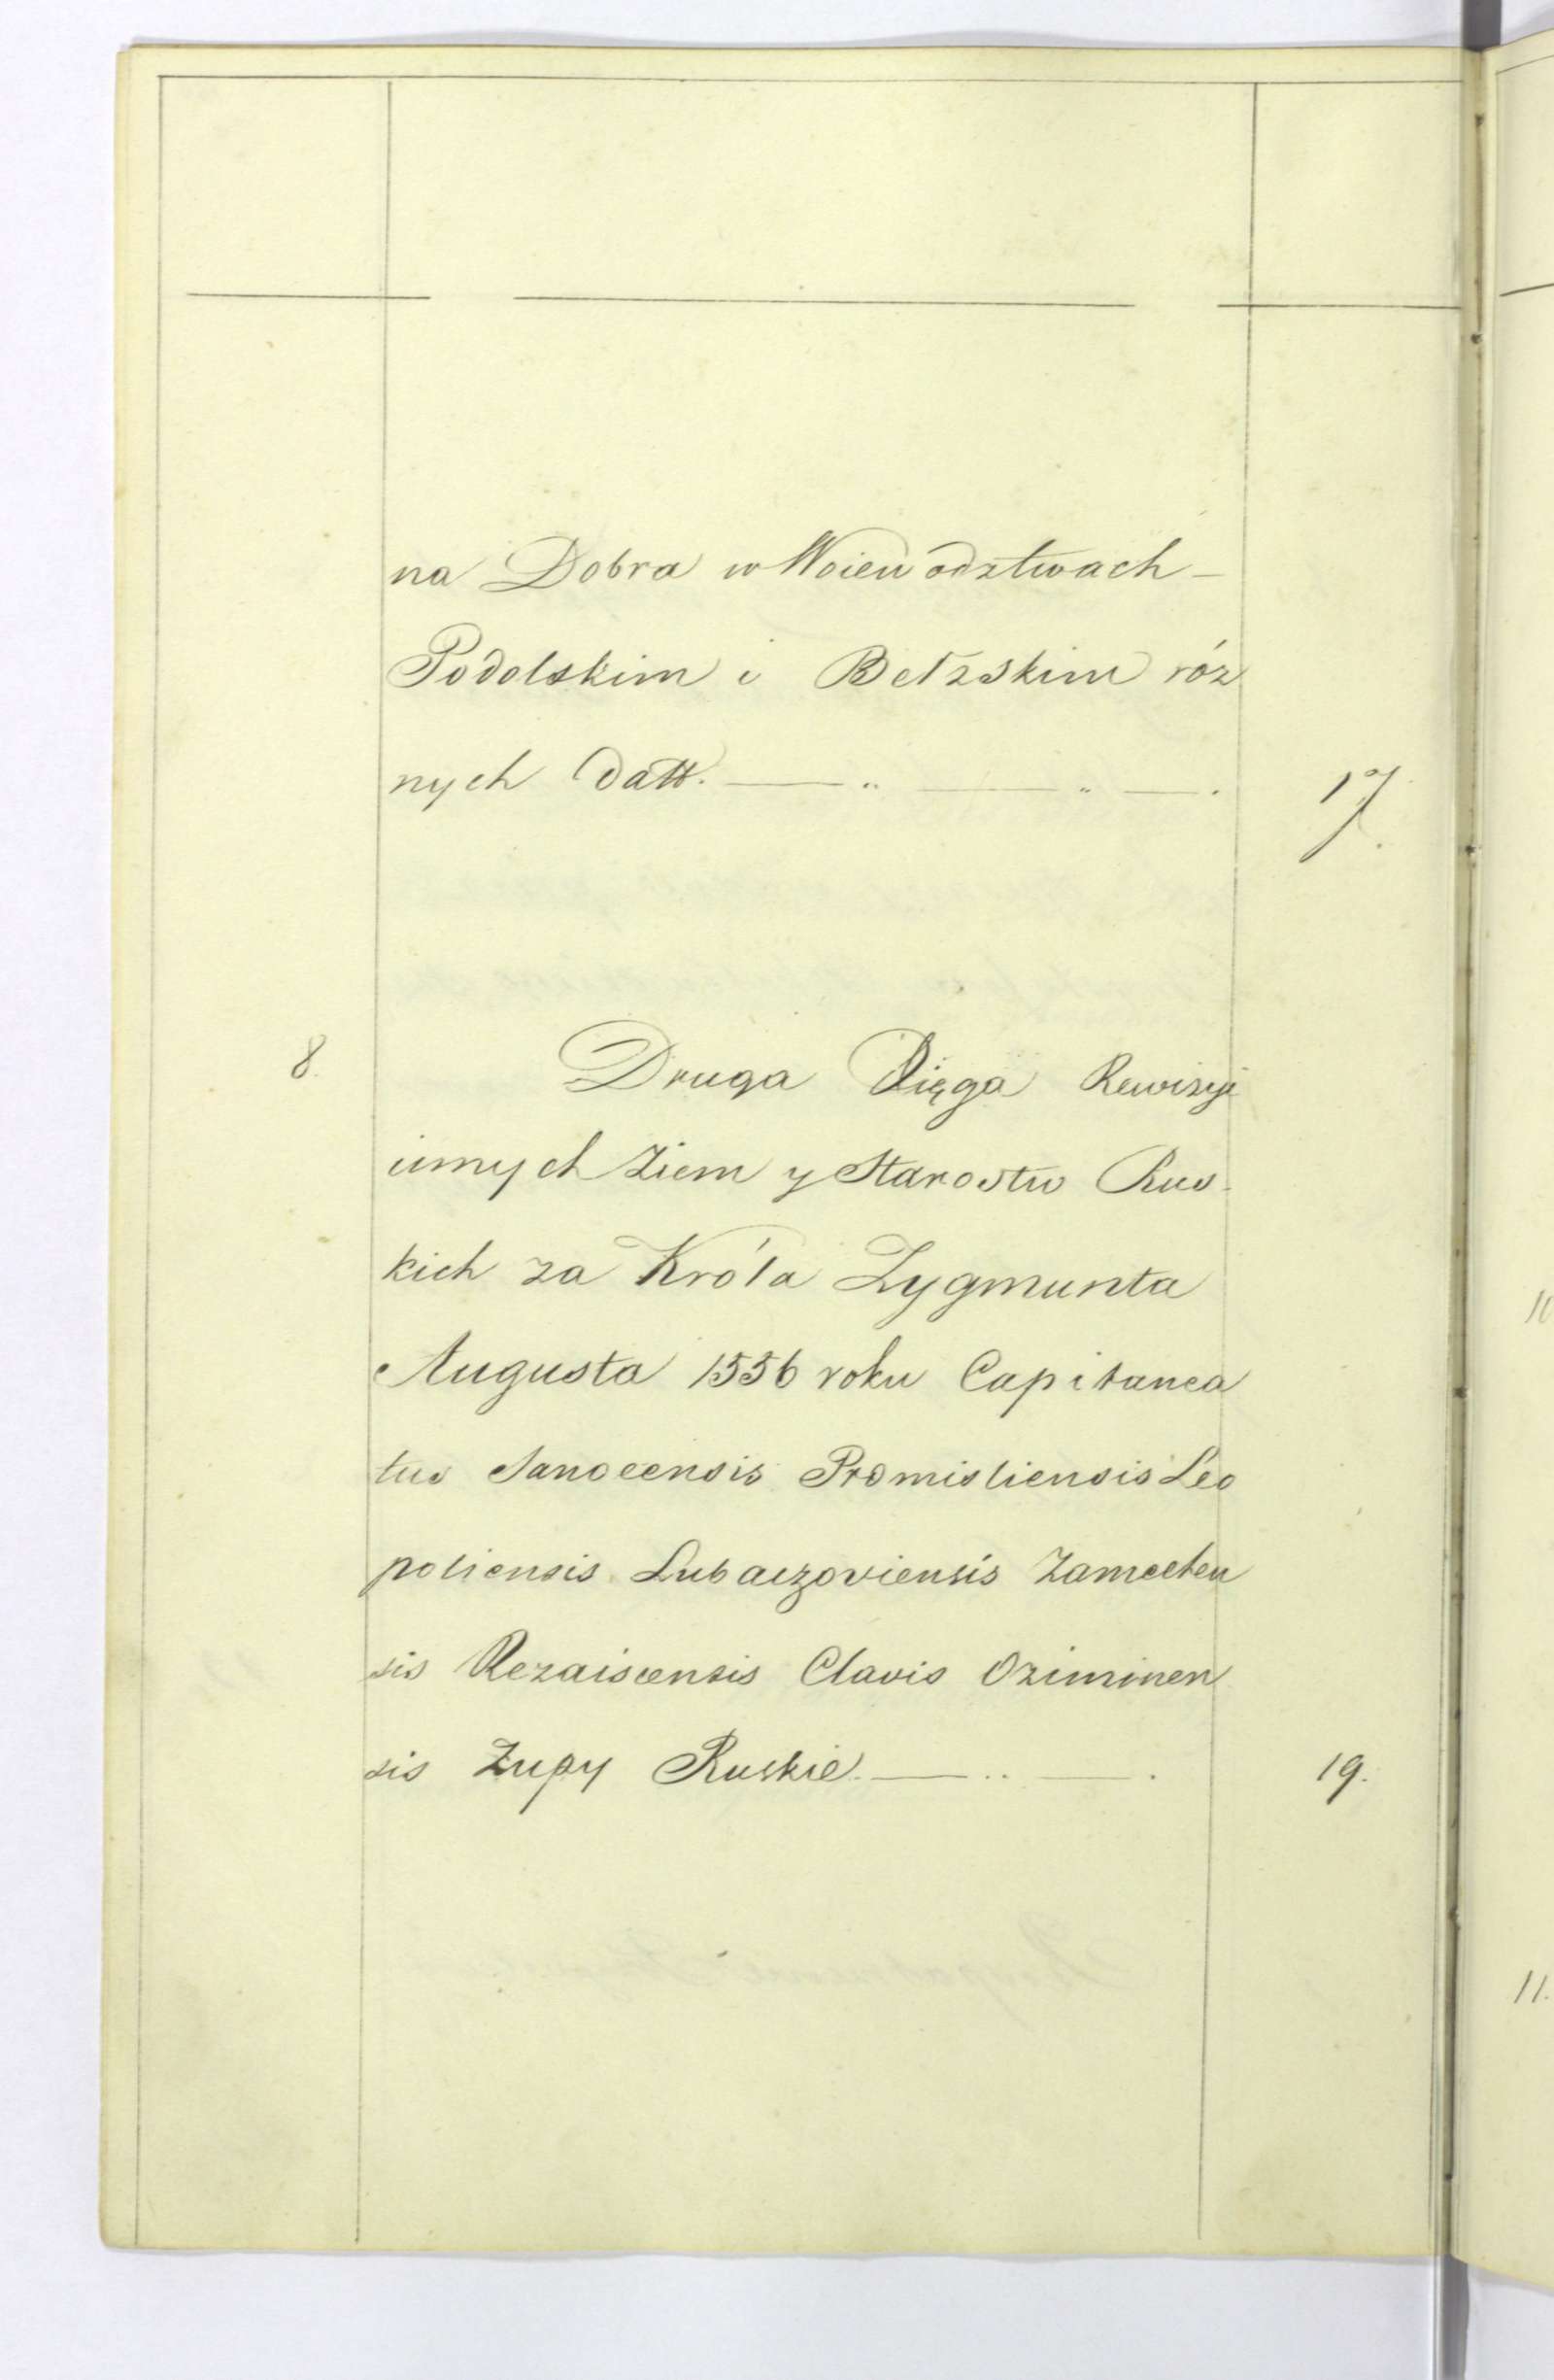 na Dobra w Woiewodztwach —
Podolskim i Bełzskim róz
nych datt. — „ — „ — . 17.
8. Druga Xięga Rewizyi
innych Ziem y Starostw Rus-
kich za Króla Zygmunta
Augusta 1556 roku Capitanea
tus Sanocensis Promisliensis Leo
poliensis Lubaczoviensis Zamechen
sis Rezaiscensis Clavis Oziminen
sis Zupy Ruskie. — .. — . 19.
10
11.